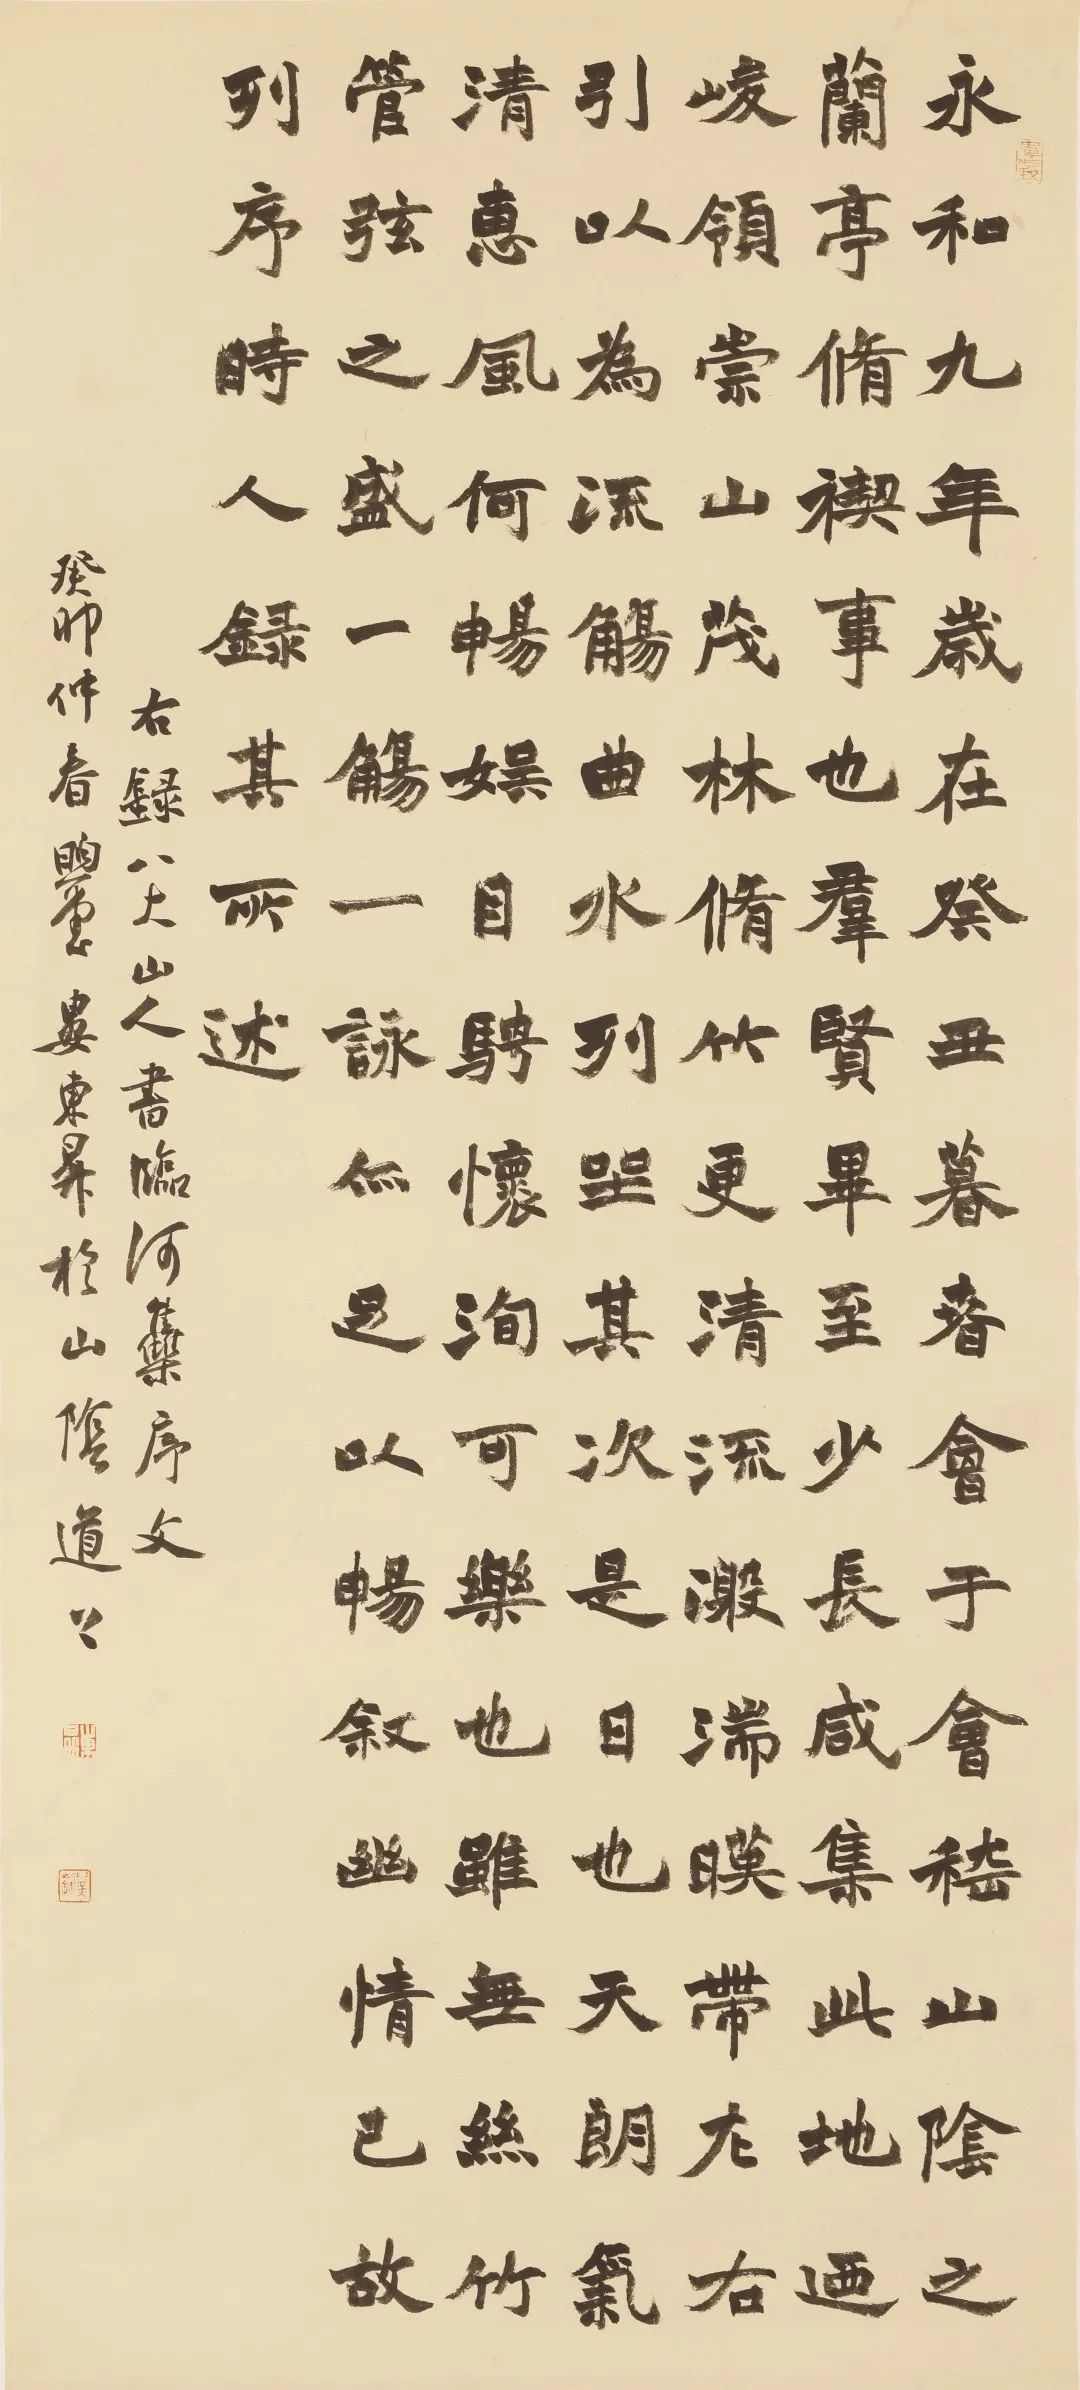 永和九年歲在癸丑暮春會于會稽山陰之
蘭亭脩禊事也羣賢畢至少長咸集此地迺
峻領崇山茂林脩竹更清流激湍暎帶左右
引以為流觴曲水列坐其次是日也天朗氣
清惠風何暢娛目騁懷洵可樂也雖無絲竹
管弦之盛一觴一詠亦足以暢敘幽情已故
列序時人録其所述
右録八大山人書臨河集序文
癸卯仲春婁東昇於山陰道上